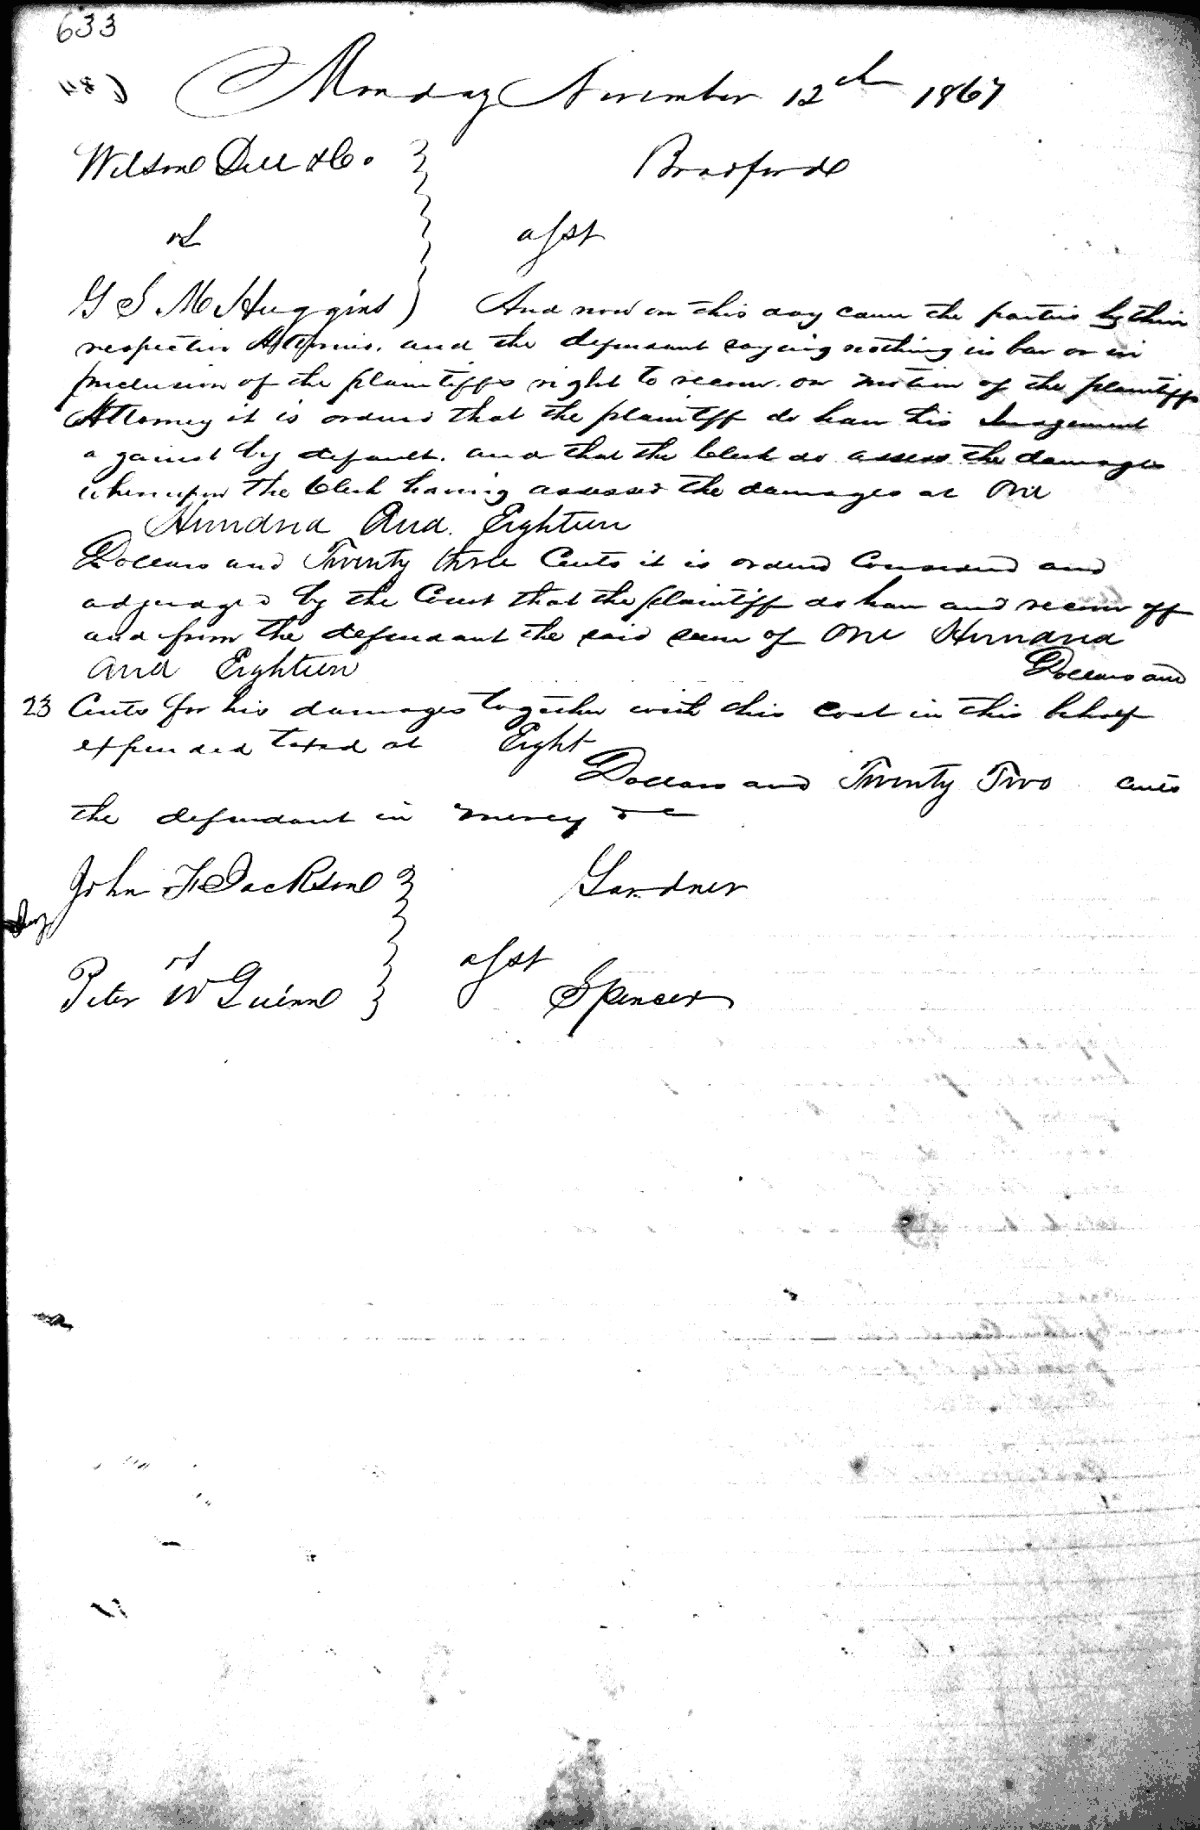 633
Monday November 12th 1867
Wilson Dell & Co. Bradford
vs agst
G S McHuggins ) And now on this day came the parties by thier
respective Attornies. and the defendant saying nothing in bar or in
preclusion of the plaintiffs right to recover. on motion of the plaintiffs
Attorney it is ordered that the plaintiff do have his Judgement
against by default. and that the Clerk do assess the damages
whereupon the Clerk having assessed the damages at One
Hundred And. Eighteen
Dollars and Twenty three Cents it is ordered Considered and
adjudged by the Court that the plaintiff do have and recover off
and from the defendant the said sum of One Hundred
and Eighteen Dollars and
23 Cents for his damages together with this cost in this behalf
expended taxed at Eight
Dollars and Twenty Two cents
the defendant in mercy &c
John F Jackson Gardner
vs agst
Peter W Guinn Spencer